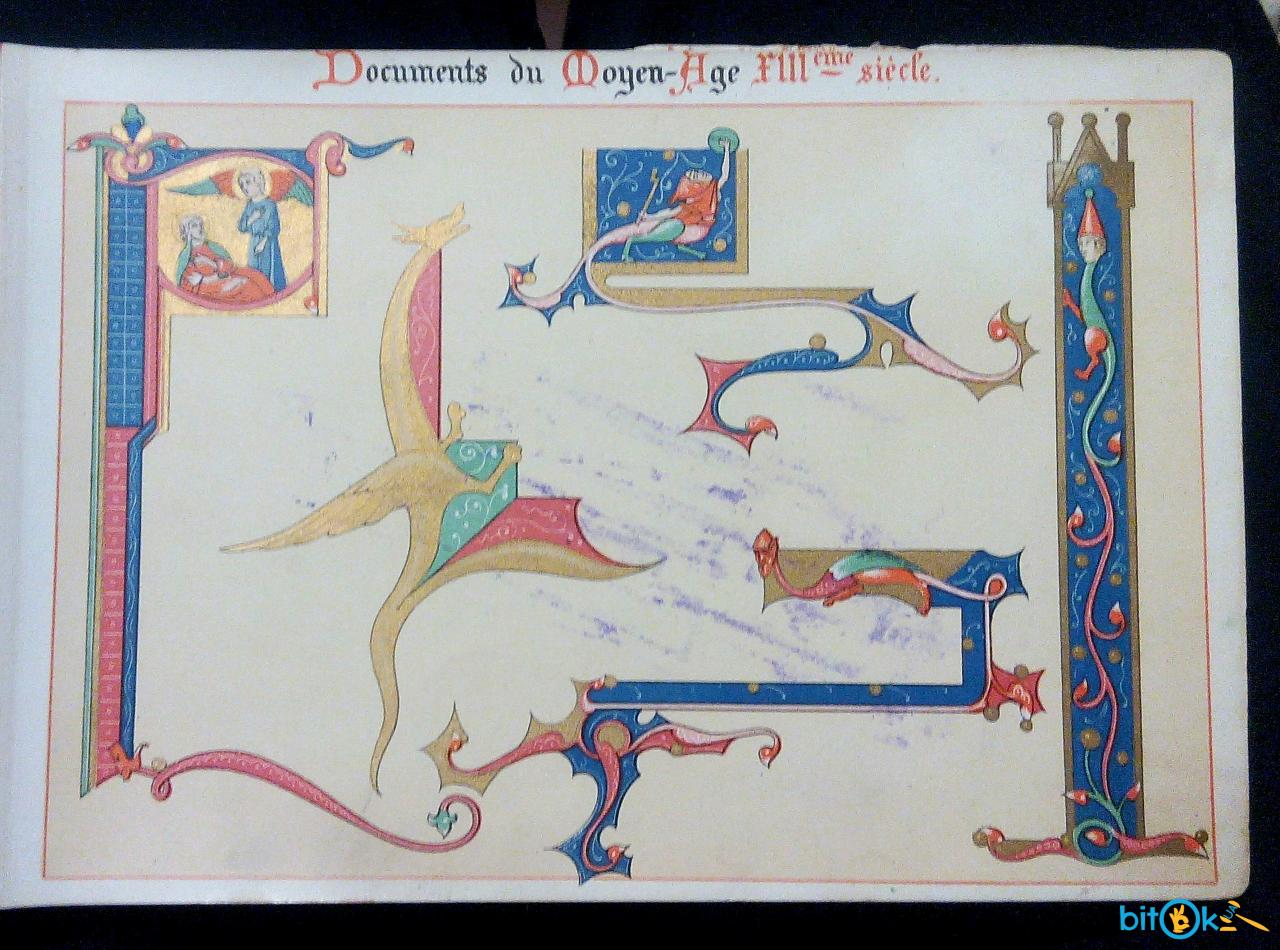 Documents du Moyen-Age XIIIème siècle.
bitOk UA